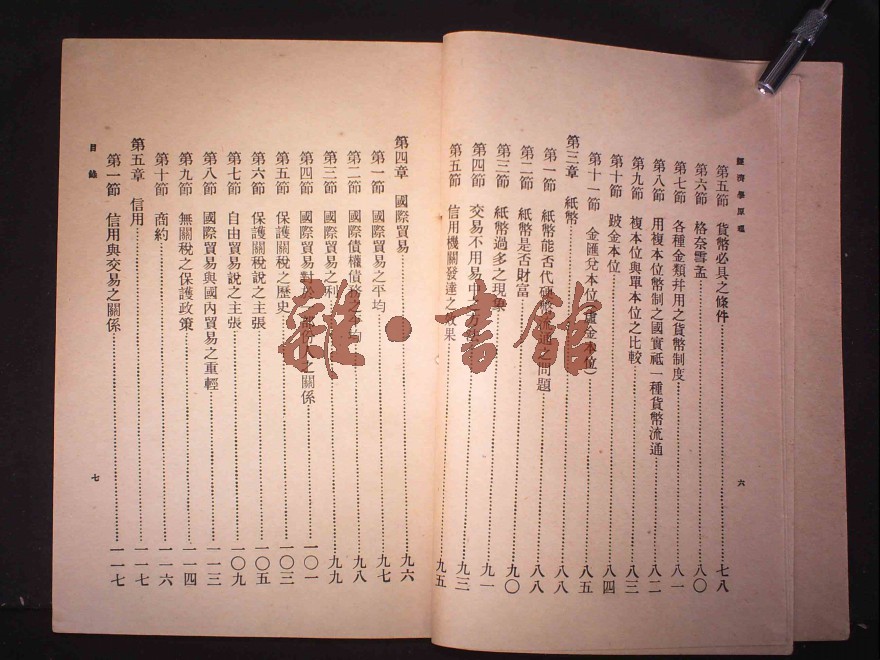 經濟學原理
第五節 貨幣必具之條件……七八
第六節 格奈雪孟……八〇
第七節 各種金類幷用之貨幣制度……八一
第八節 用複本位幣制之國實祗一種貨幣流通……八二
第九節 複本位與單本位之比較……八三
第十節 跛金本位……八四
第十一節 金匯兌本位(虛金本位)……八五
第三章 紙幣……八八
第一節 紙幣能否代硬幣流通之問題……八八
第二節 紙幣是否財富……九〇
第三節 紙幣過多之現象……九一
第四節 交易不用易中……九三
第五節 信用機關發達之效果……九五
六
第四章 國際貿易……九六
第一節 國際貿易之平均……九七
第二節 國際債權債務之……九八
第三節 國際貿易之利……九九
第四節 國際貿易對於之關係……一〇一
第五節 保護關稅之歷史……一〇三
第六節 保護關稅說之主張……一〇五
第七節 自由貿易說之主張……一〇九
第八節 國際貿易與國內貿易之重輕……一一三
第九節 無關稅之保護政策……一一四
第十節 商約……一一六
第五章 信用……一一七
第一節 信用與交易之關係……一一七
目錄
七
雜·書館